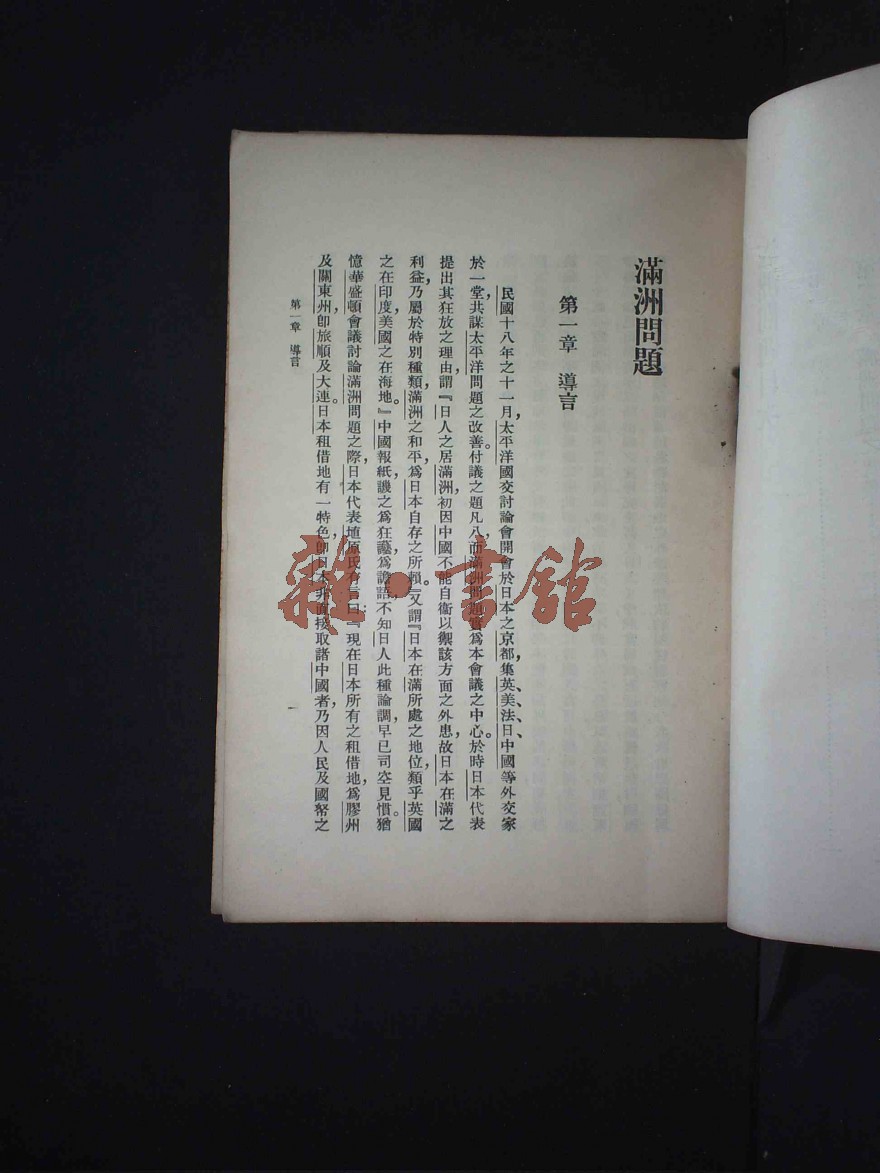 滿洲問題
第一章　導言
民國十八年之十一月，太平洋國交討論會開會於日本之京都，集英、美、法、日、中國等外交家
於一堂，共謀太平洋問題之改善。付議之題凡八，而滿洲問題實爲本會議之中心。於時日本代表
提出其狂放之理由，謂『日人之居滿洲，初因中國不能自衞以禦該方面之外患，故日本在滿之
利益，乃屬於特別種類，滿洲之和平，爲日本自存之所賴。』又謂『日本在滿所處之地位，類乎英國
之在印度，美國之在海地。』中國報紙，譏之爲狂囈，爲譫語，不知日人此種論調，早已司空見慣。猶
憶華盛頓會議討論滿洲問題之際，日本代表埴原氏有言曰：『現在日本所有之租借地，爲膠州
及關東州，卽旅順及大連。日本租借地有一特色，卽日本非直接取諸中國者，乃因人民及國帑之
第一章　導言
一
雜·書館